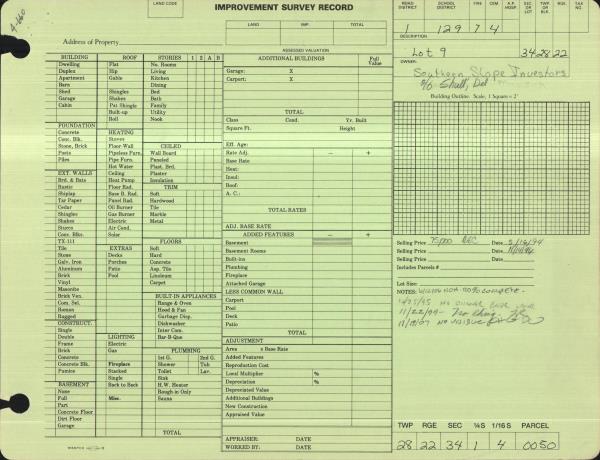 A-660
LAND CODE
IMPROVEMENT SURVEY RECORD
LAND IMP. TOTAL
ASSESSED VALUATION
Address of Property
ROAD DISTRICT SCHOOL DISTRICT FIRE CEM. A.P. HOSP. SEC OR LOT TWP OR BLK. RGE. TAX NO.
1 129 7 4 34 28 22
DESCRIPTION
Lot 9
OWNER:
Southern Slope Investors
c/o Shutt, Del
Building Outline. Scale, 1 Square = 2'
BUILDING ROOF STORIES 1 2 A B
Dwelling Flat No. Rooms
Duplex Hip Living
Apartment Gable Kitchen
Barn Dining
Shed Shingles Bed
Garage Shakes Bath
Cabin Pat Shingle Family
Built-up Utility
Roll Nook
FOUNDATION
Concrete HEATING
Conc. Blk. Stoves CEILED
Stone, Brick Floor Wall Wall Board
Posts Pipeless Furn. Paneled
Piles Pipe Furn. Plast. Brd.
Hot Water Plaster
EXT. WALLS Ceiling Insulation
Brd. & Bats Heat Pump
Rustic Floor Rad. TRIM
Shiplap Base B. Rad. Soft
Tar Paper Panel Rad. Hardwood
Cedar Oil Burner Tile
Shingles Gas Burner Marble
Shakes Electric Metal
Stucco Air Cond.
Conc. Blks. Solar FLOORS
TX-111
Tile EXTRAS Soft
Stone Decks Hard
Galv. Iron Porches Concrete
Aluminum Patio Asp. Tile
Brick Pool Linoleum
Vinyl Carpet
Masonite
Brick Ven. BUILT-IN APPLIANCES
Com. Sel. Range & Oven
Roman Hood & Fan
Ragged Garbage Disp.
CONSTRUCT. Dishwasher
Single Inter Com.
Double LIGHTING Bar-B-Que
Frame Electric
Brick Gas PLUMBING
Concrete 1st G. 2nd G.
Concrete Blk. Fireplace Shower Tub
Pumice Stacked Toilet Lav.
Single Sink
BASEMENT Back to Back H.W. Heater
None Rough-in Only
Full Misc. Sauna
Part
Concrete Floor
Dirt Floor
Garage TOTAL
ADDITIONAL BUILDINGS Full Value
Garage: X
Carport: X
TOTAL
Class Cond. Yr. Built
Square Ft. Height
Eff. Age:
Rate Adj. – +
Base Rate
Heat:
Insul:
Roof:
A. C.:
TOTAL RATES
ADJ. BASE RATE
ADDED FEATURES – +
Basement
Basement Rooms
Built-ins
Plumbing
Fireplace
Attached Garage
LESS COMMON WALL
Carport
Pool
Deck
Patio
TOTAL
ADJUSTMENT
Area x Base Rate
Added Features
Reproduction Cost
Local Multiplier %
Depreciation %
Depreciated Value
Additional Buildings
New Construction
Appraised Value
APPRAISER: DATE
WORKED BY: DATE
Selling Price 75,000 Date 5/16/94
Selling Price Date
Selling Price Date
Includes Parcels #
Lot Size:
NOTES:
11/22/99
TWP RGE SEC ¼S 1/16 S PARCEL
28 22 34 1 4 0050